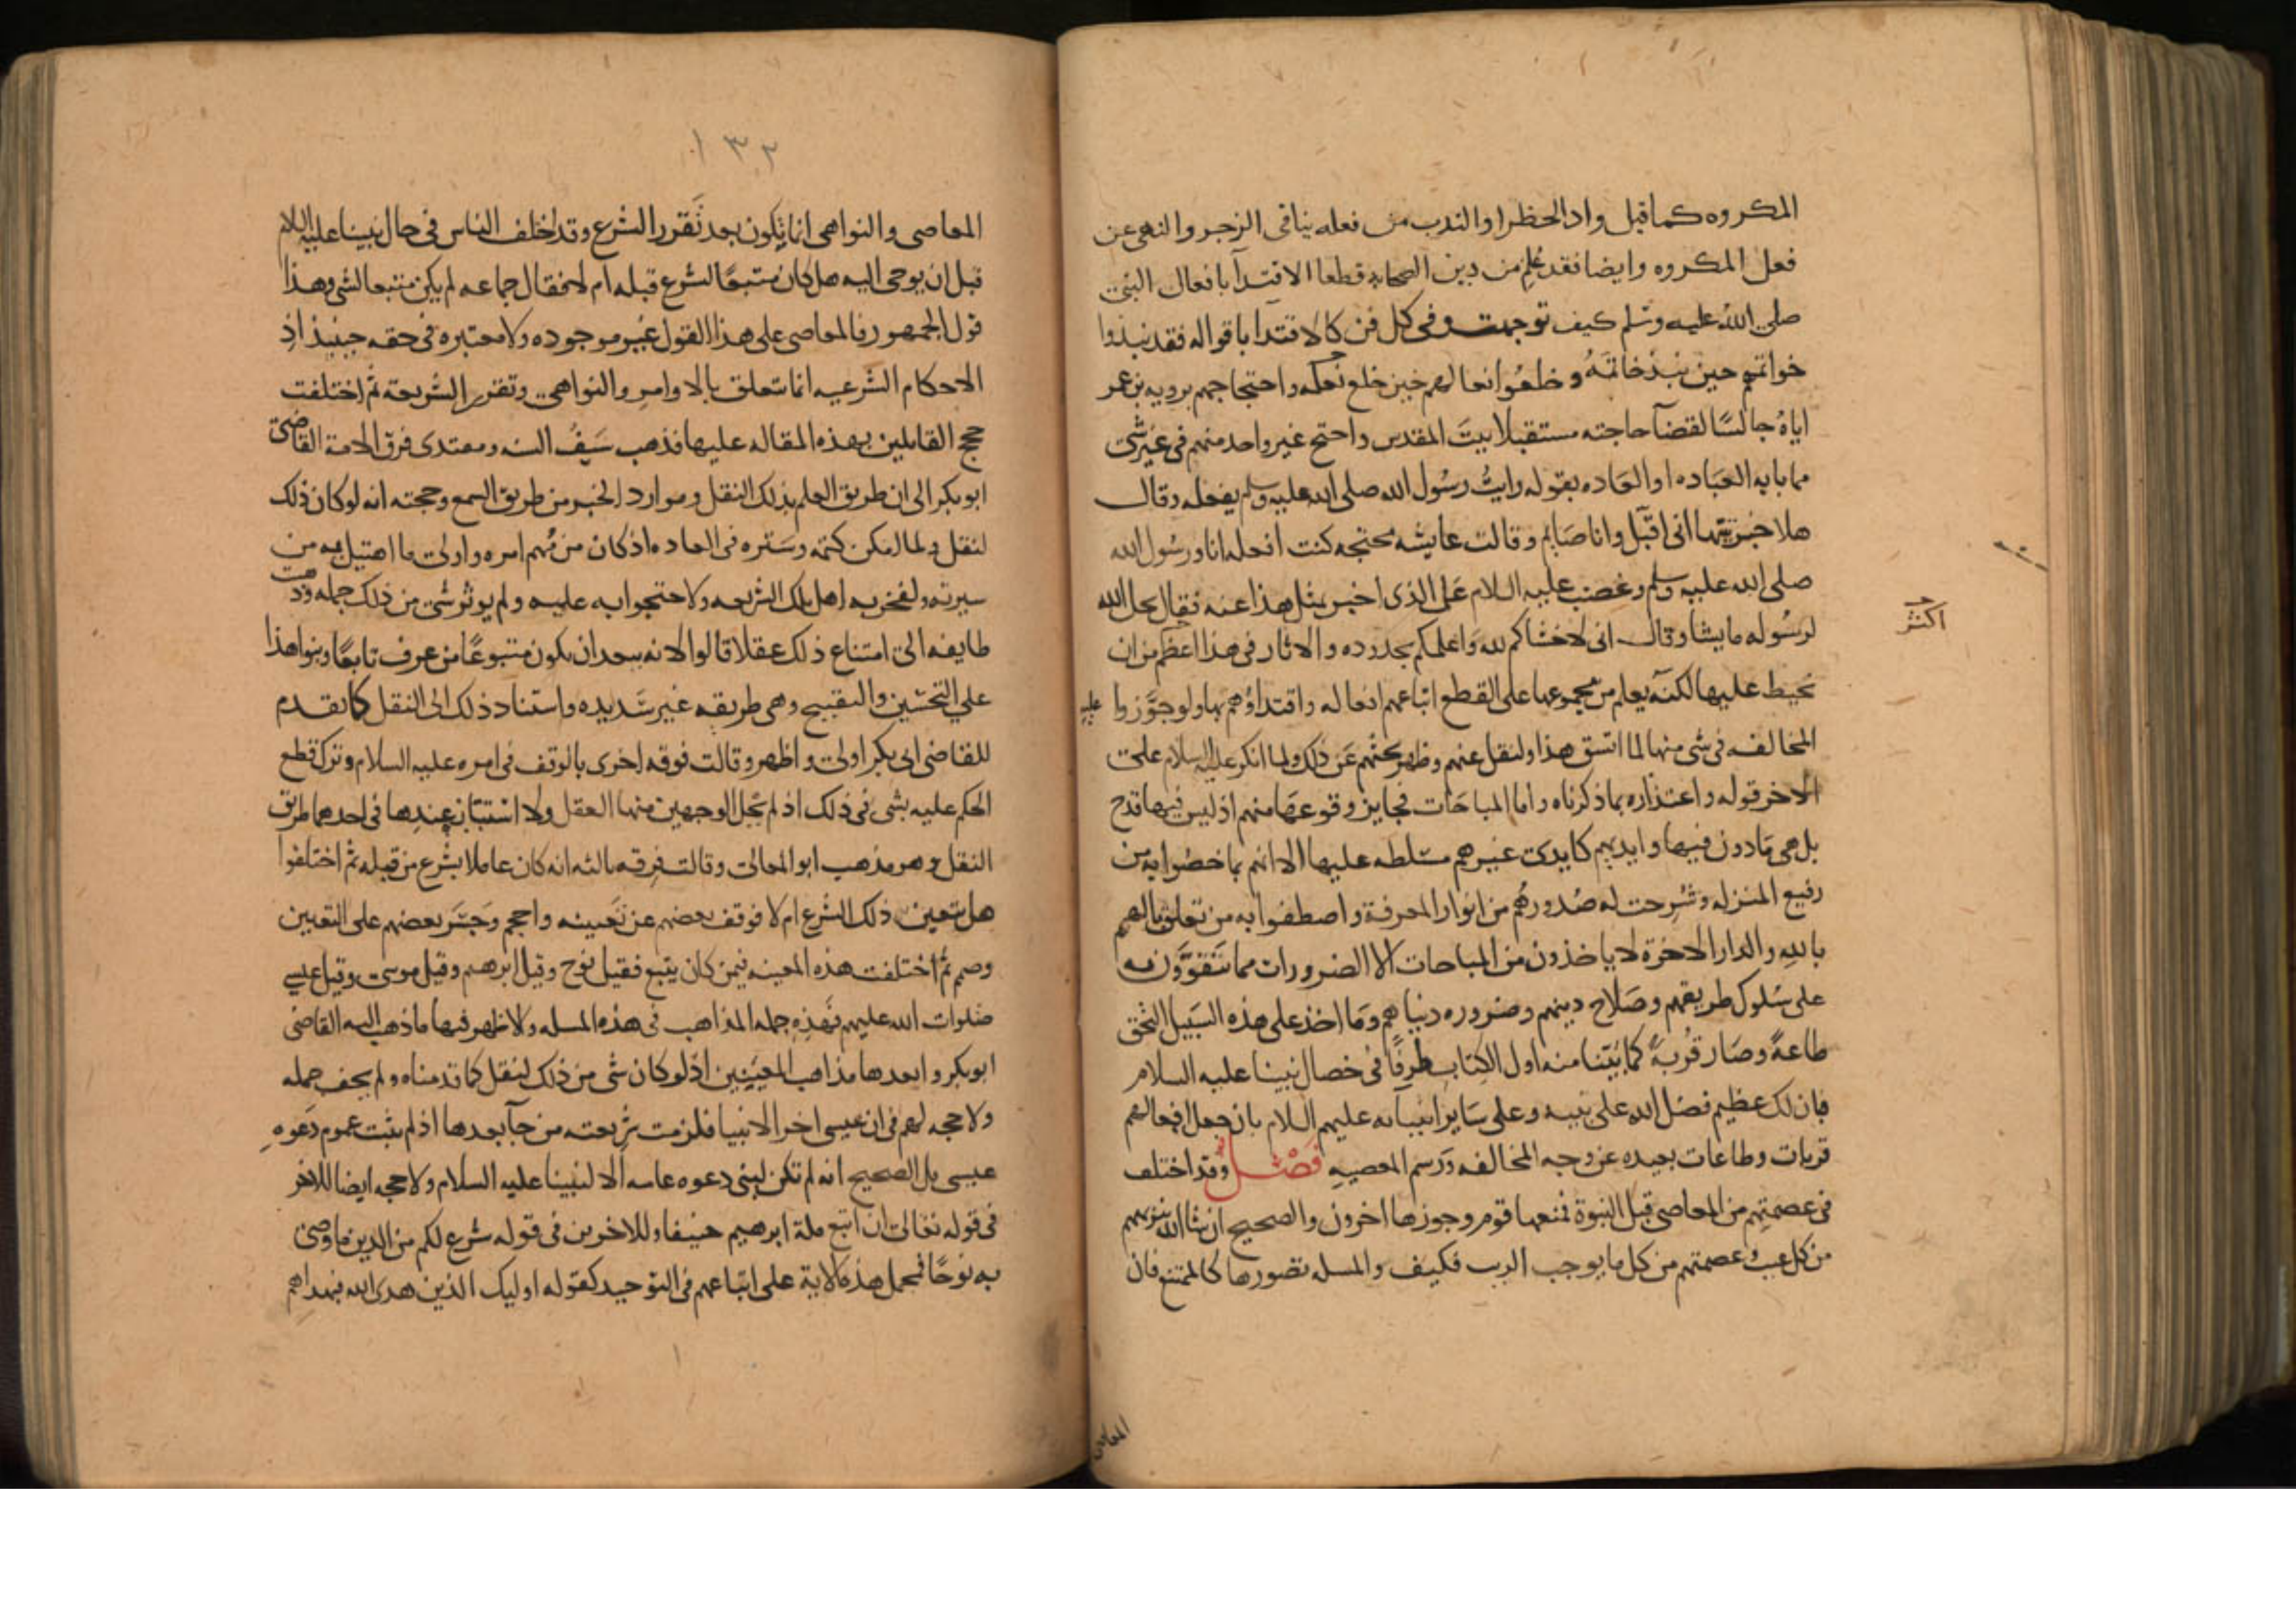 المكروه كما قيل واذ الحظر او الندب من فعله ينافى الزجر والنهى عن
فعل المكروه وايضا فقد عُلم من دين الصحابه قطعا الاقتدآ بافعال النبى
صلى الله عليه وسلم كيف توجهت وفى كل فن كالاقتدا باقواله فقد نبذوا
خواتمهم حين نبذ خاتمَهُ وخلعُوا نعالهم حين خلع نعله واحتجاجهم بروية بن عمر
اياهُ جالسًا لقضآ حاجته مستقبلا بيتَ المقدس واحتج غير واحد منهم فى غير شى
مما بابه العبَاده او العَاده بقوله رايتُ رسُول الله صلى الله عليه وسلم يفعله وقال
هلا خبرتيها انى اقبّل وانا صَايم وقالت عايشه محتجه كنت افعله انا ورسُول الله
صلى الله عليه وسلم وغضب عليه السلام عَلى الذى اخبر بمثل هذا عنه فقال يحل الله
لرسُوله ما يشا وقال انى لاخشاكم لله وَاعلمكم بحدوده والاثار فى هذا اعظم من ان
اكثر
نحيط عليها لكنه يعلم من مجموعها على القطع اتباعهم افعاله واقتداؤهم بها ولو جوّزوا
عليه
المخالفه فى شى منها لما اتسق هذا ولنقل عنهم وظهر بحثهم عَن ذلك ولما انكر عليه السلام على
الاخر قوله واعتذاره بما ذكرناه واما المباحَات فجايز وقوعهَا منهم اذ ليس فيها قدح
بل هى مَاذون فيها وايديهم كايدى غيرهم مسَلطه عليها الا انهم بما خصُوا به من
رفيع المنزله وشُرِحت له صُدورهُم من انوار المعرفة واصطفوا به من تعلق بالهم
بالله والدار الاخرة لا ياخذون من المباحات الا الضرورات مما يتَقوَّون به
على سُلوك طريقهم وصَلاح دينهم وضروره دنياهم وَما اخذ على هذه السَبيل التحق
طاعةً وصَار قُربةً كما بيّنا منه اول الكتاب طرفًا فى خصال نبينا عليه السلام
فبان لك عظيم فضل الله على نبيه وعلى سَاير انبيائه عليهم السلام بان جعل افعالهم
قربات وطاعات بعيده عن وجه المخالفه وَرسم المعصيه فَصْل وقد اختلف
فى عصمتهم من المعاصى قبل النبوة فمنعها قوم وجوزها اخرون والصحيح ان شا الله تنزيههم
من كل عيب وعصمتهم من كل ما يوجب الريب فكيف والمسله تصورها كالممتنع فان
المعاصى
١٣٢
المعاصى والنواهى انما تكون بعد تَقرر الشرع وقد اختلف الناس فى حال نبينا عليه السلام
قبل ان يوحى اليه هل كان متبعًا لشرع قبله ام لا فقال جماعه لم يكن متبعا لشى وهذا
قول الجمهور فالمعاصى على هذا القول غير موجوده ولا معتبره فى حقه حينيذ اذِ
الاحكام الشرعيه انما تتعلق بالاوامر والنواهى وتقرر الشريعه ثم اختلفت
حجج القايلين بهذه المقاله عليها فذهب سَيفُ السنه ومقتدى فرق الامة القاضى
ابو بكر الى ان طريق العلم بذلك النقل وموارد الخبر من طريق السمع وحجته انه لو كان ذلك
لنقل ولما امكن كتمه وسَتره فى العاده اذ كان من مُهم امره واولى ما اهتبل به من
سيرته ولفخر به اهل تلك الشريعه ولاحتجوا به عليه ولم يوثر شى من ذلك جمله وذهبت
طايفه الى امتناع ذلك عقلا قالوا لانه يبعد ان يكون متبوعًا من عرف تابعًا وبنوا هذا
على التحسين والتقبيح وهى طريقه غير سَديده واستناد ذلك الى النقل كما تقدم
للقاضى ابى بكر اولى واظهر وقالت فرقه اخرى بالوقف فى امره عليه السلام وترك قطع
الحكم عليه بشى فى ذلك اذ لم يُحل الوجهين منها العقل ولا استبان عندها فى احدهما طريق
النقل وهو مذهب ابو المعالى وقالت فرقه ثالثه انه كان عاملا بشرع من قبله ثم اختلفوا
هل يتعين ذلك الشرع ام لا فوقف بعضهم عن تَعيينه واحجم وَجسَر بعضهم على التعيين
وصمم ثم اختلفت هذه المعينه فيمن كان يتبع فقيل نوح وقيل ابرهيم وقيل موسى وقيل عيسى
صَلوات الله عليهم فهَذِه جمله المذاهب فى هذه المسله والاظهر فيها ما ذهب اليه القاضى
ابو بكر وابعدها مذاهب المعيّنين اذ لو كان شى من ذلك لنقل كما قدمناه ولم يخف جمله
ولا حجه لهم فى ان عيسى اخر الانبيا فلزمت شريعته من جآ بعدها اذ لم يثبت عموم دَعوه
عيسى بل الصحيح انه لم تكن لنبى دعوه عامه الا لنبينا عليه السلام ولا حجه ايضا للاخر
فى قوله تعَالى ان اتبع ملة ابرهيم حنيفا وللاخرين فى قوله شرع لكم من الدين ما وصى
به نوحًا فيحمل هذه الاية على اتباعهم فى التوحيد كقوله اوليك الذين هدى الله فبهداهم